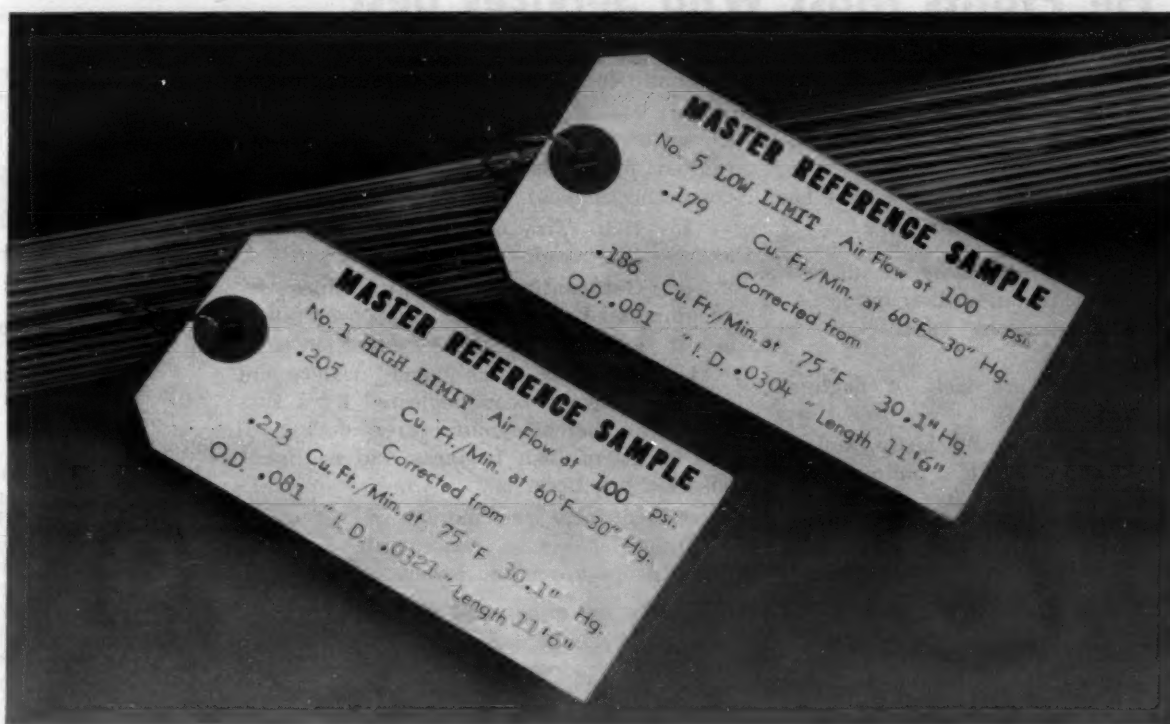 MASTER REFERENCE SAMPLE
No. 5 LOW LIMIT Air Flow at 100 psi.
.179 Cu. Ft./Min. at 60°F—30" Hg.
Corrected from
.186 Cu. Ft./Min. at 75 °F 30.1" Hg.
O.D. .081 " I. D. .0304 " Length 11'6"
MASTER REFERENCE SAMPLE
No. 1 HIGH LIMIT Air Flow at 100 psi.
.205 Cu. Ft./Min. at 60°F—30" Hg.
Corrected from
.213 Cu. Ft./Min. at 75 °F 30.1" Hg.
O.D. .081 " I. D. .0321 " Length 11'6"